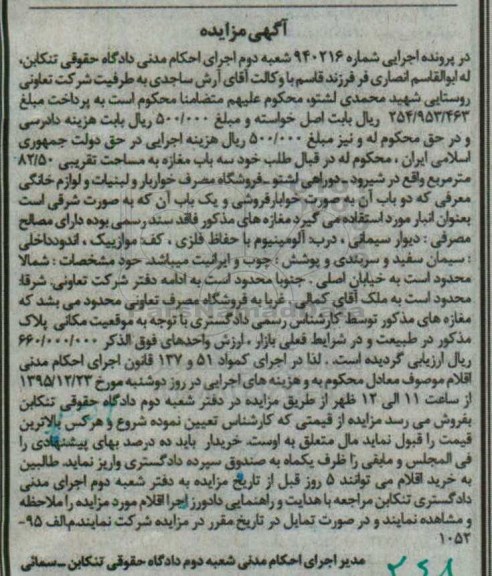 آگهی مزایده
در پرونده اجرایی شماره ۹۴۰۲۱۶ شعبه دوم اجرای احکام مدنی دادگاه حقوقی تنکابن،
له ابوالقاسم انصاری فر فرزند قاسم با وکالت آقای آرش ساجدی به طرفیت شرکت تعاونی
روستایی شهید محمدی لشتو، محکوم علیهم متضامنا محکوم است به پرداخت مبلغ
۲۵۴/۹۵۳/۴۶۳ ریال بابت اصل خواسته و مبلغ ۵۰۰/۰۰۰ ریال بابت هزینه دادرسی
و در حق محکوم له و نیز مبلغ ۵۰۰/۰۰۰ ریال هزینه اجرایی در حق دولت جمهوری
اسلامی ایران ، محکوم له در قبال طلب خود سه باب مغازه به مساحت تقریبی ۸۲/۵۰
مترمربع واقع در شیرود ـ دوراهی لشتو ـ فروشگاه مصرف خواربار و لبنیات و لوازم خانگی
معرفی که دو باب آن به صورت خواربارفروشی و یک باب آن که به صورت شرقی است
بعنوان انبار مورد استفاده می گیرد مغازه های مذکور فاقد سند رسمی بوده دارای مصالح
مصرفی : دیوار سیمانی ، درب: آلومینیوم با حفاظ فلزی ، کف: موازییک ، اندودداخلی
: سیمان سفید و سربندی و پوشش : چوب و ایرانیت میباشد. حود مشخصات : شمالا
محدود است به خیابان اصلی . جنوبا محدود است به ادامه دفتر شرکت تعاونی. شرقا:
محدود است به ملک آقای کمالی . غربا به فروشگاه مصرف تعاونی محدود می بشد که
مغازه های مذکور توسط کارشناس رسمی دادگستری با توجه به موقعیت مکانی پلاک
مذکور در طبیعت و در شرایط فعلی بازار ، ارزش واحدهای فوق الذکر ۶۶۰/۰۰۰/۰۰۰
ریال ارزیابی گردیده است. . لذا در اجرای کمواد ۵۱ و ۱۳۷ قانون اجرای احکام مدنی
اقلام موصوف معادل محکوم به و هزینه های اجرایی در روز دوشنبه مورخ ۱۳۹۵/۱۲/۲۳
از ساعت ۱۱ الی ۱۲ ظهر از طریق مزایده در دفتر شعبه دوم دادگاه حقوقی تنکابن
بفروش می رسد مزایده از قیمتی که کارشناس تعیین نموده شروع و هرکس بالاترین
قیمت را قبول نماید مال متعلق به اوست. خریدار باید ده درصد بهای پیشنهادی را
فی المجلس و مابقی را ظرف یکماه به صندوق سپرده دادگستری واریز نماید. طالبین
به خرید اقلام می توانند ۵ روز قبل از تاریخ مزایده به دفتر شعبه دوم اجرای مدنی
دادگستری تنکابن مراجعه با هدایت و راهنمایی دادورز اجرا اقلام مورد مزایده را ملاحظه
و مشاهده نمایند و در صورت تمایل در تاریخ مقرر در مزایده شرکت نمایند.م/الف ۹۵-
۱۰۵۲
مدیر اجرای احکام مدنی شعبه دوم دادگاه حقوقی تنکابن ـ سمائی